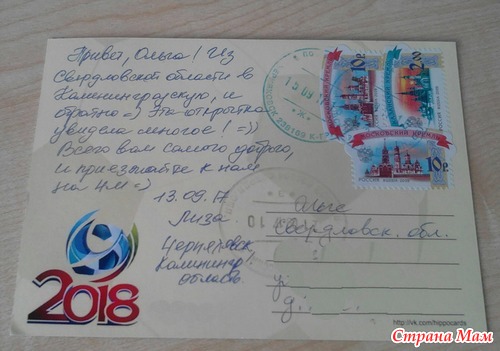 Привет, Ольга! Из
Свердловской области в
Калининградскую, и
обратно =) Эта открытка
увидела многое! =))
Всего вам самого доброго,
и приезжайте к нам
на ЧМ =)
13.09.17
Лиза.
Черняховск
Калинингр.
область
10р
2.00
МОСКОВСКИЙ КРЕМЛЬ
10р
РОССИЯ
Ольге
Свердловск. обл.
у.
д.
2018
http://vk.com/hippocards
Страна Мам